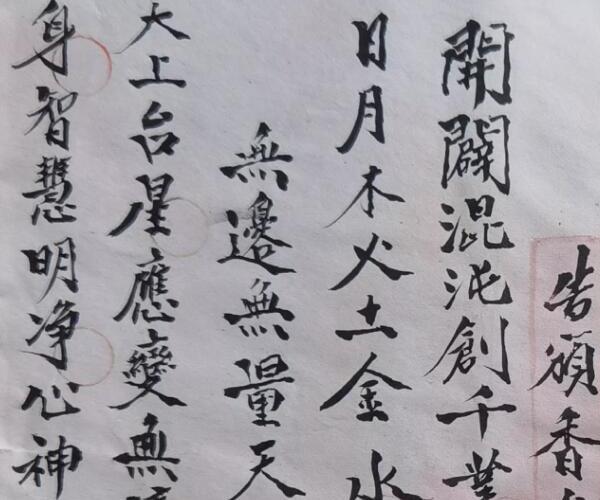 告頒香
開闢混沌創千業
日月木火土金水
無邊無量天
大上台星應變無
身智慧明净心神